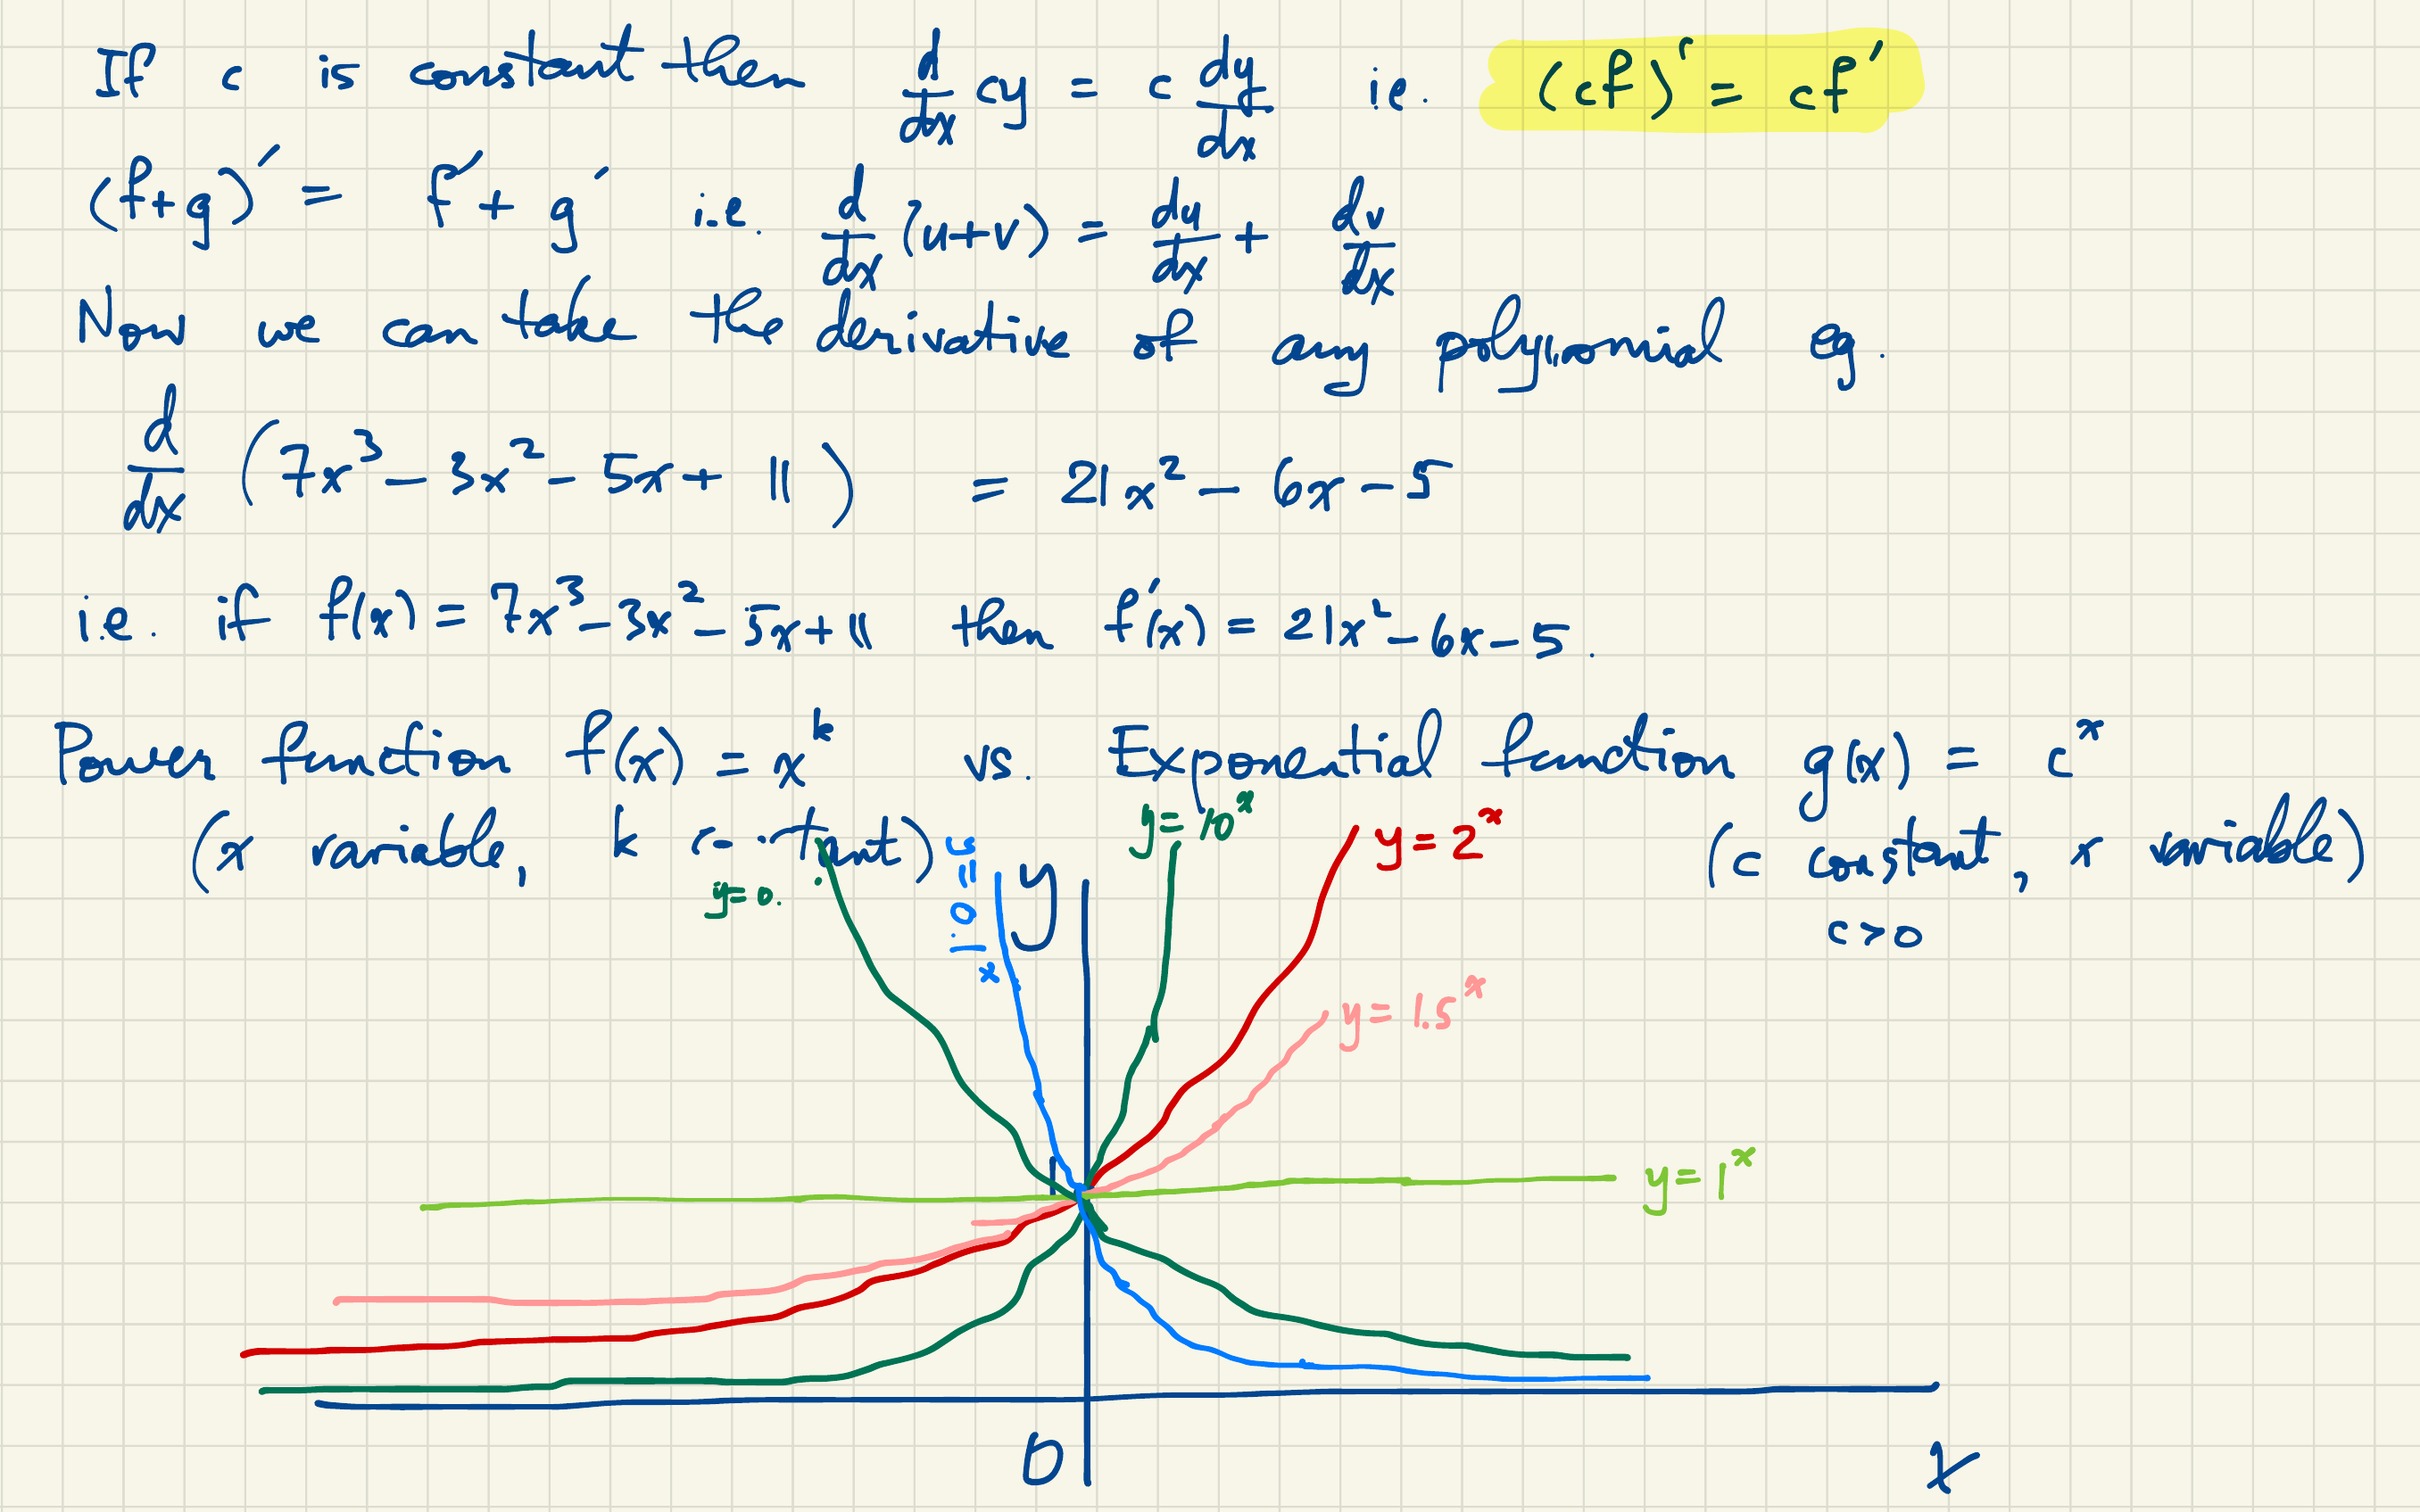 If c is constant then d/dx cy = c dy/dx ie. (cf)' = cf'
(f+g)' = f' + g' i.e. d/dx (u+v) = du/dx + dv/dx
Now we can take the derivative of any polynomial eg.
d/dx (7x³ - 3x² - 5x + 11) = 21x² - 6x - 5
i.e. if f(x) = 7x³ - 3x² - 5x + 11 then f'(x) = 21x² - 6x - 5.
Power function f(x) = x^k vs. Exponential function g(x) = c^x
(x variable, k (c constant, x variable)
c>0
y=10^x
y=2^x
y=0.
y=0.1^x
y
y=1.5^x
1
y=1^x
0
x